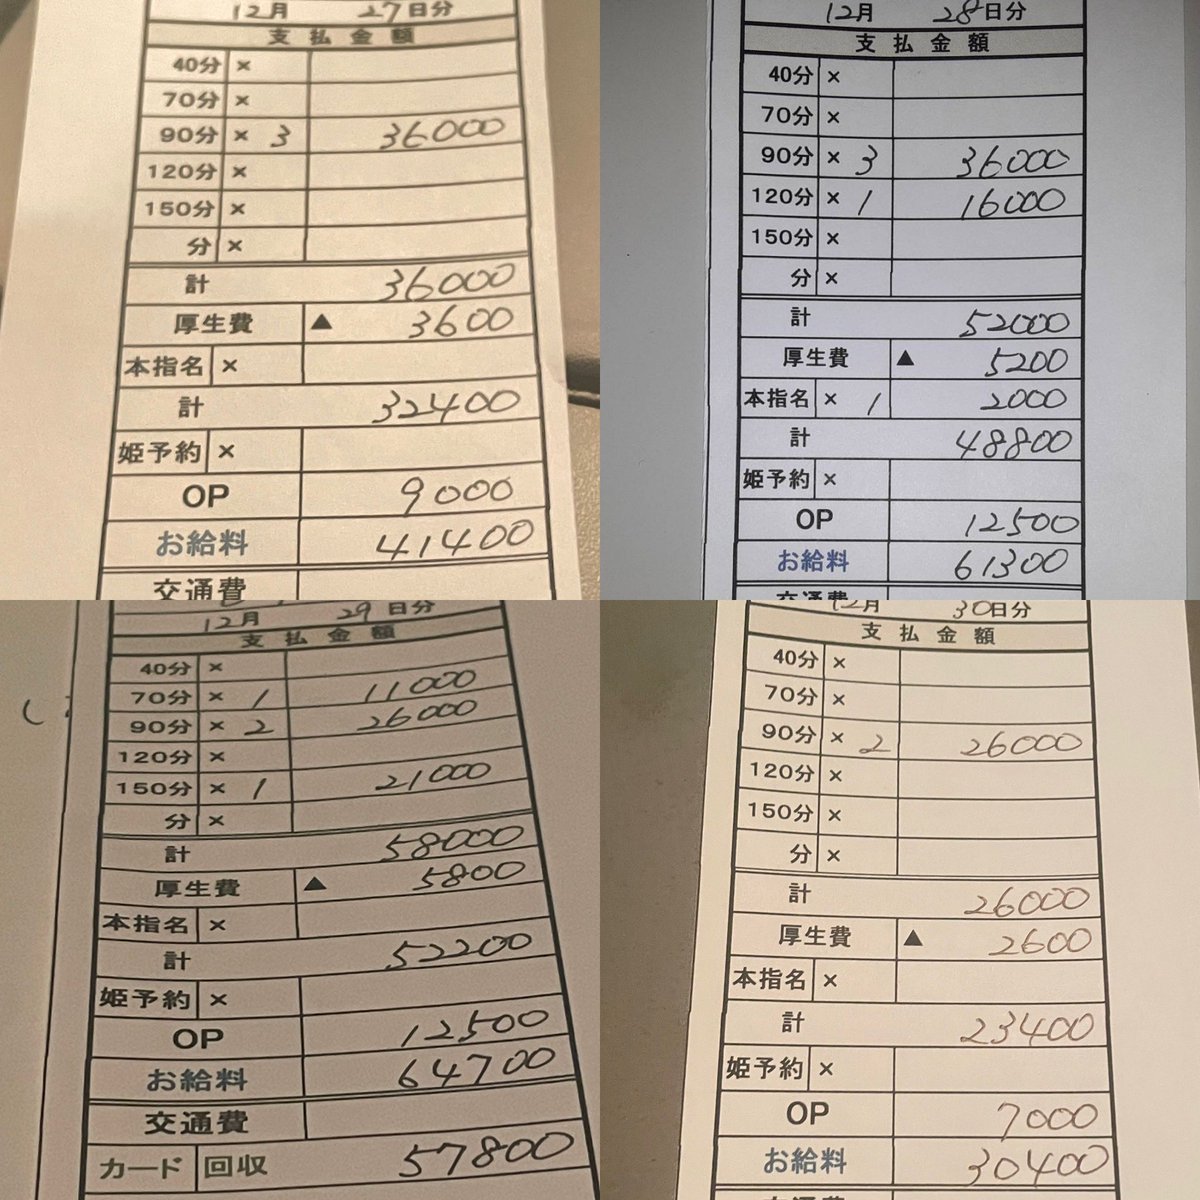 12月 27日分
支払金額
40分 ×
70分 ×
90分 × 3 36000
120分 ×
150分 ×
分 ×
計 36000
厚生費 ▲ 3600
本指名 ×
計 32400
姫予約 ×
OP 9000
お給料 41400
交通費
12月 28日分
支払金額
40分 ×
70分 ×
90分 × 3 36000
120分 × 1 16000
150分 ×
分 ×
計 52000
厚生費 ▲ 5200
本指名 × 1 2000
計 48800
姫予約 ×
OP 12500
お給料 61300
交通費
12月 29日分
支払金額
40分 ×
70分 × 1 11000
90分 × 2 26000
120分 ×
150分 × 1 21000
分 ×
計 58000
厚生費 ▲ 5800
本指名 ×
計 52200
姫予約 ×
OP 12500
お給料 64700
交通費
カード 回収 57800
12月 30日分
支払金額
40分 ×
70分 ×
90分 × 2 26000
120分 ×
150分 ×
分 ×
計 26000
厚生費 ▲ 2600
本指名 ×
計 23400
姫予約 ×
OP 7000
お給料 30400